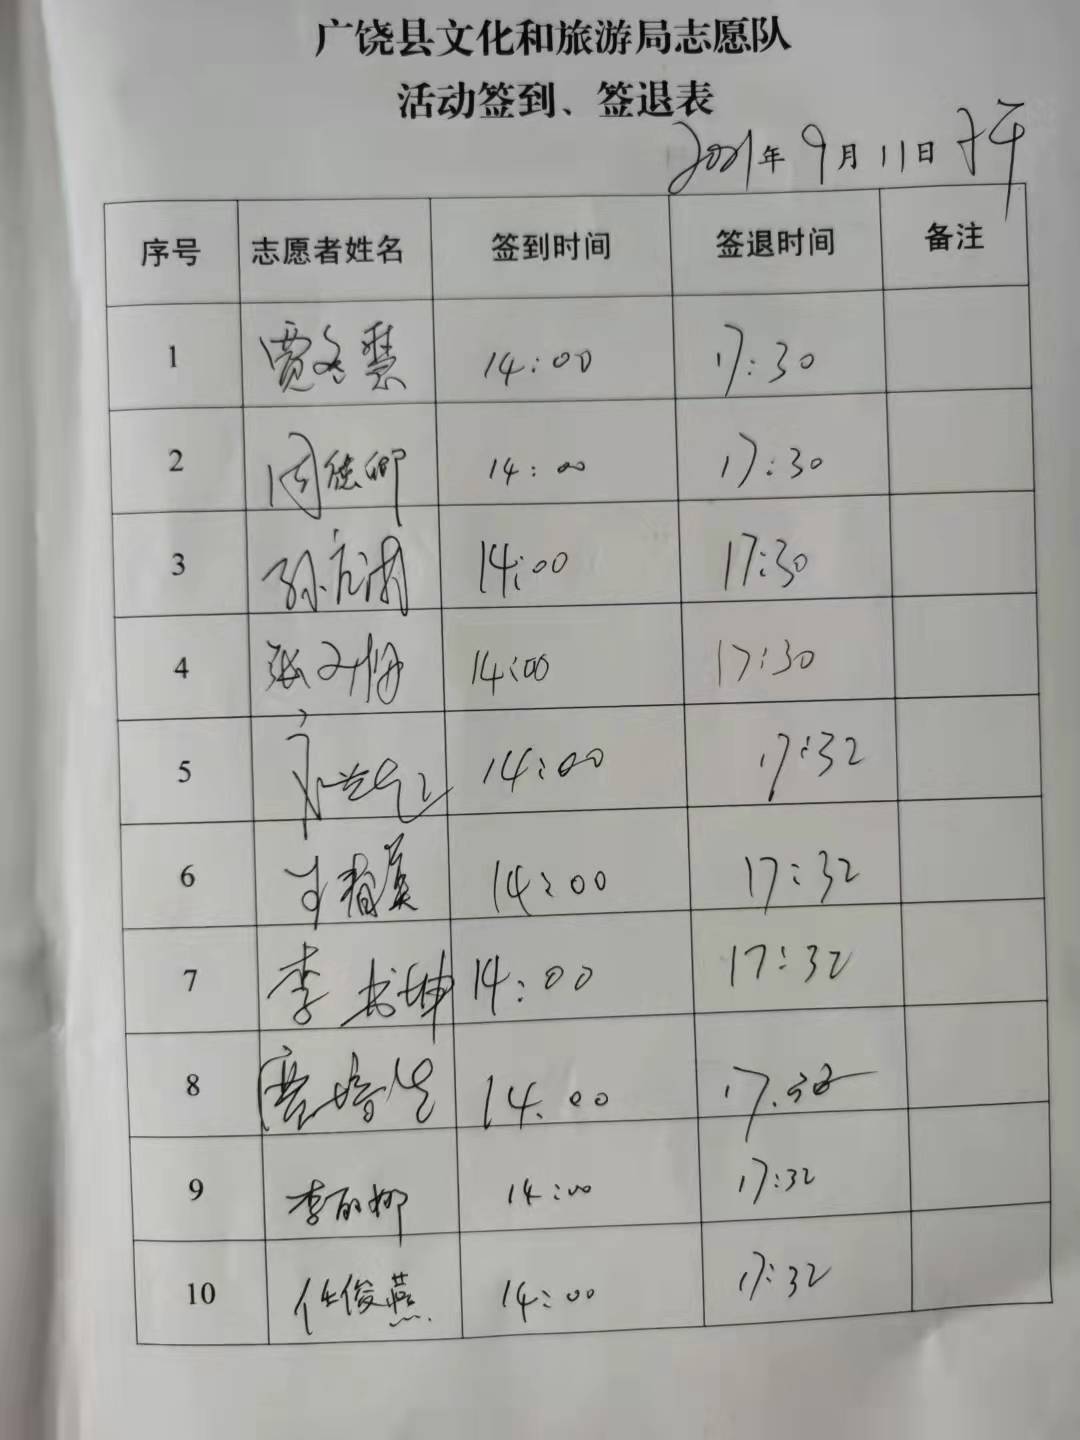 广饶县文化和旅游局志愿队
活动签到、签退表
2021年9月11日 下午
序号 志愿者姓名 签到时间 签退时间 备注
1 贾冬慧 14:00 17:30
2 周德卿 14:00 17:30
3 孙 14:00 17:30
4 张 14:00 17:30
5 14:00 17:32
6 14:00 17:32
7 李书坤 14:00 17:32
8 14.00 17.32
9 李丽娜 14:00 17:32
10 任俊燕 14:00 17:32